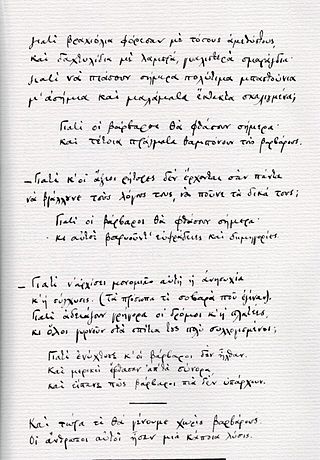 γιατί βραχιόλια φόρεσαν μὲ τόσους ἀμεθύστους,
καὶ δαχτυλίδια μὲ λαμπρά, γυαλιστερὰ σμαράγδια·
γιατί νὰ πιάσουν σήμερα πολύτιμα μπαστούνια
μ' ἀσήμια καὶ μαλάματα ἔκτακτα σκαλισμένα;
Γιατί οἱ βάρβαροι θὰ φθάσουν σήμερα·
καὶ τέτοια πράγματα θαμπόνουν τοὺς βαρβάρους.
— Γιατί κ' οἱ ἄξιοι ρήτορες δὲν ἔρχονται σὰν πάντα
νὰ βγάλουνε τοὺς λόγους τους, νὰ ποῦνε τὰ δικά τους;
Γιατί οἱ βάρβαροι θὰ φθάσουν σήμερα·
κι αὐτοὶ βαρυοῦντ' εὐφράδειες καὶ δημηγορίες.
— Γιατί ν' ἀρχίσει μονομιᾶς αὐτὴ ἡ ἀνησυχία
κ' ἡ σύγχυσις. (Τὰ πρόσωπα τί σοβαρὰ ποὺ ἔγιναν).
Γιατί ἀδειάζουν γρήγορα οἱ δρόμοι κ' ἡ πλατέες,
κι ὅλοι γυρνοῦν στὰ σπίτια τους πολὺ συλλογισμένοι;
Γιατί ἐνύχτωσε κ' οἱ βάρβαροι δὲν ἦλθαν.
Καὶ μερικοὶ ἔφθασαν ἀπ' τὰ σύνορα,
καὶ εἴπανε πὼς βάρβαροι πιὰ δὲν ὑπάρχουν.
Καὶ τώρα τί θὰ γένουμε χωρὶς βαρβάρους.
Οἱ ἄνθρωποι αὐτοὶ ἦσαν μιὰ κάποια λύσις.